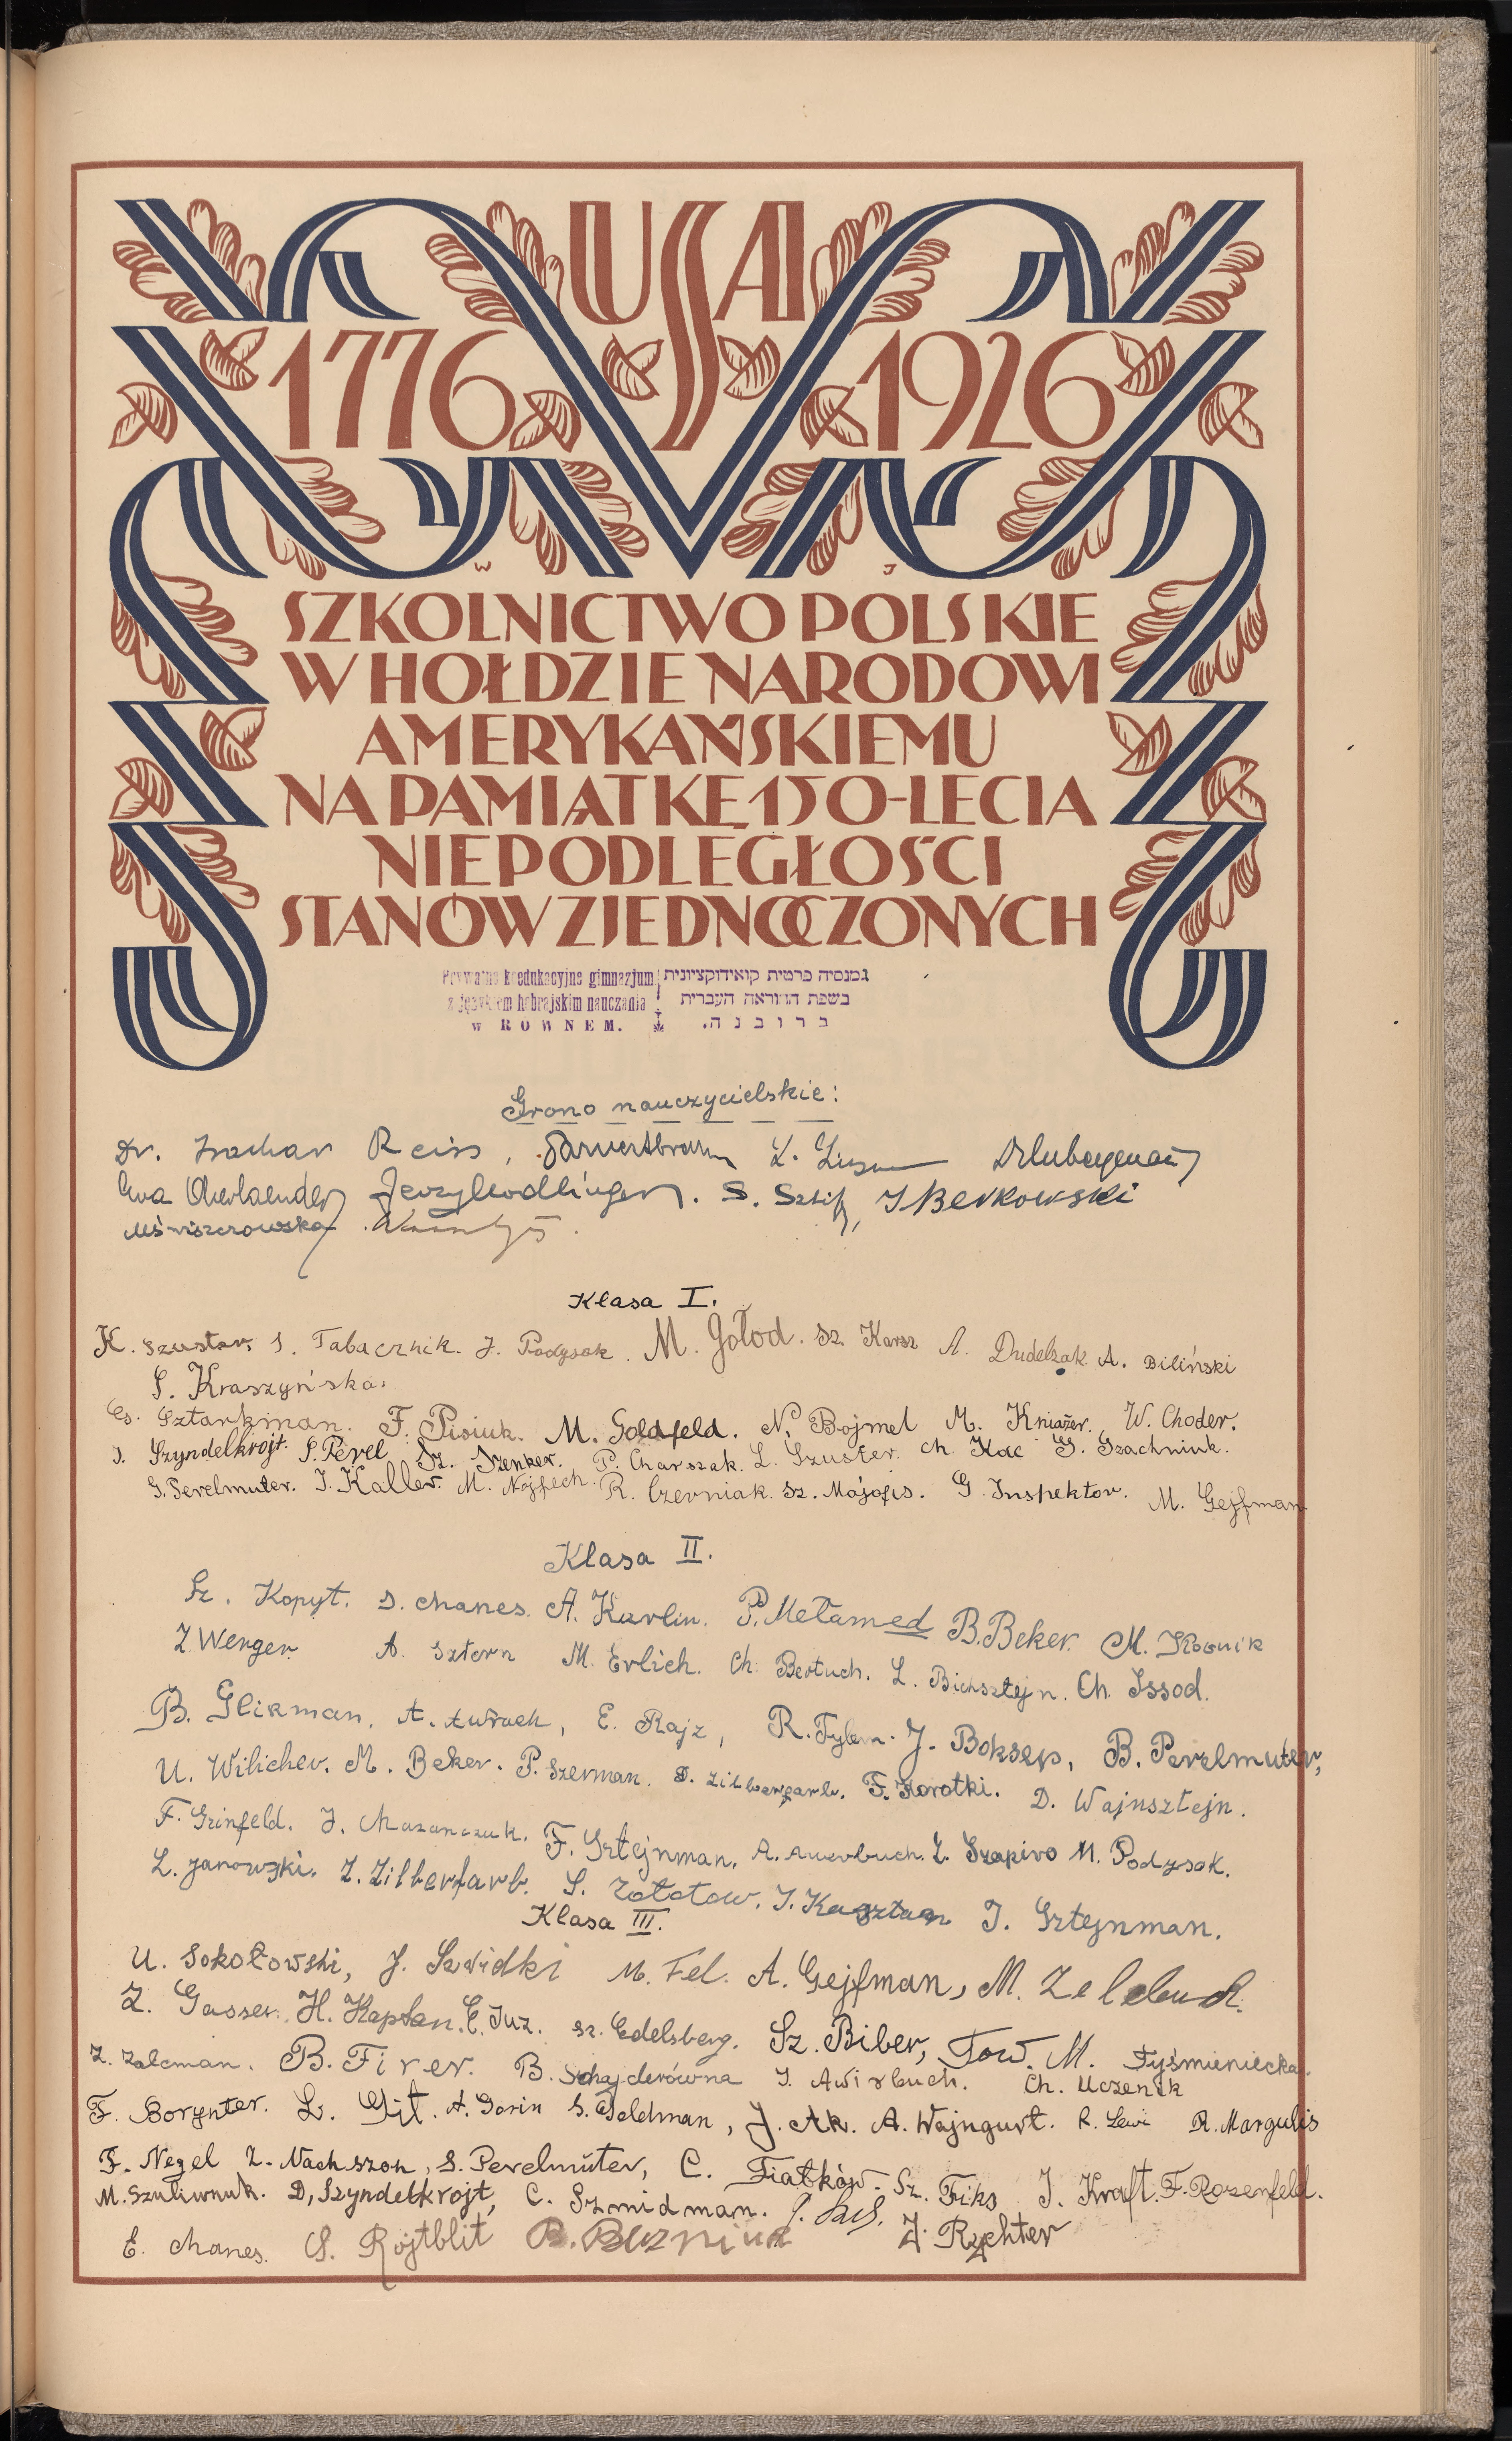 USA
1776 1926
W J
SZKOLNICTWO POLSKIE
W HOŁDZIE NARODOWI
AMERYKAŃSKIEMU
NA PAMIĄTKĘ 150-LECIA
NIEPODLEGŁOŚCI
STANÓW ZJEDNOCZONYCH
Prywatne koedukacyjne gimnazjum
z językiem hebrajskim nauczania
w ROWNEM.
גמנסיה פרטית קואידוקציונית
בשפת ההוראה העברית
ברובנה.
Grono nauczycielskie:
Dr. Izachar Reiss, L.
Ewa Oberlaender, S. J Berkowski
Klasa I.
K. Szuster, S. Tabacznik. J. Podysok. M. Gołod. Sz. Karsz A. Dudelzak A. Biliński
S. Kraszyńska.
Es. Sztarkman. F. Pisiuk. M. Goldfeld. N. Bojmel M. Kniażer. W. Choder.
S. Szyndelkrojt. S. Perel Sz. Szenker. P. Charszak. L. Szuster. Ch. Kac G. Szachniuk.
G. Perelmuter. J. Kaller. M. Nojfech. R. Czerniak. Sz. Majofis. G. Inspektor. M. Gejfman
Klasa II.
Sz. Kopyt. D. Chanes. A. Karlin. P. Mełamed B. Beker. M. Kownik
Z. Wenger. A. Sztern M. Erlich. Ch. Bertuch. L. Bichsztejn. Ch. Issod.
B. Glikman, A. E. Rajz, R. J. Bokser, B. Perelmuter,
U. Wilicher. M. Beker. P. Szerman. D. Zilberfarb. F. Korotki. D. Wajnsztejn.
F. Grinfeld. J. Mazanczuk. F. Sztejnman. A. Auerbuch. Z. Szapiro M. Podysok.
L. Janowski. Z. Zilberfarb. S. Zołotow. J. Kasztan J. Sztejnman.
Klasa III.
U. Sokołowski, J. Szwidki M. Fel. A. Gejfman, M. Zelcbuch.
Z. Gasser. H. Kapłan. E. Juz. Sz. Edelsberg. Sz. Biber, Tow. M. Tyśmieniecka.
Z. Zalcman. B. Firer. B. Sznajderówna J. Awirbuch. Ch. Uczenik
F. Borynter. L. Git. A. Gorin S. Goldman, J. Ak. A. Wajngurt. R. Lewi R. Margulis
F. Negel Z. Nachszon, S. Perelmuter, C. Fiałków. Sz. Fiks J. Kraft. F. Rozenfeld.
M. Szuliwnuk. D. Szyndelkrojt, C. Szmidman. J. Rychter
E. Chanes. S. Rojtblit B. Buzniuk